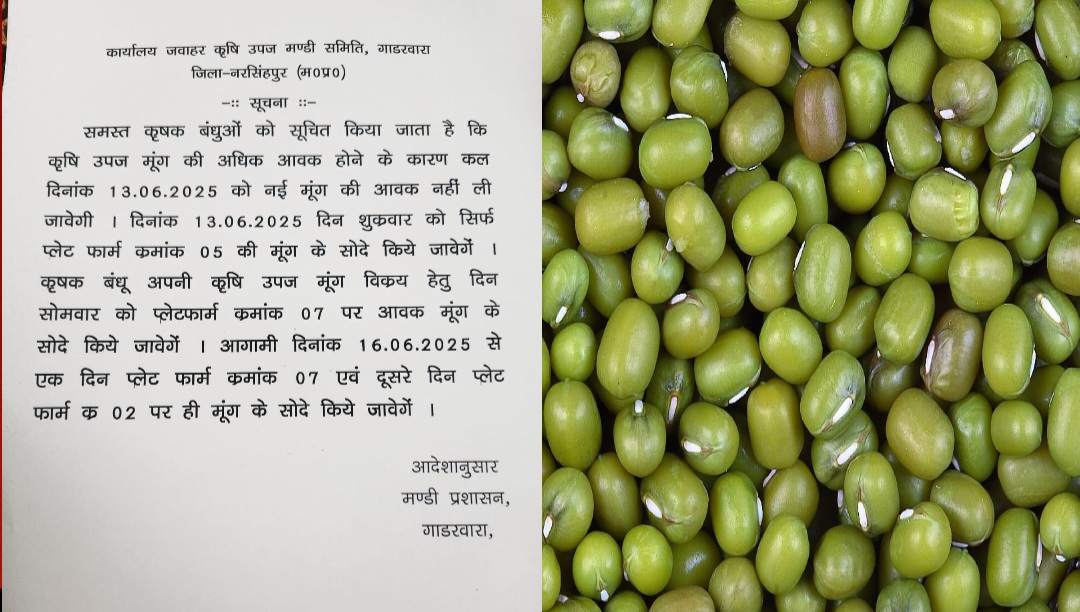 कार्यालय जवाहर कृषि उपज मण्डी समिति, गाडरवारा
जिला-नरसिंहपुर (म०प्र०)
-:: सूचना ::-
समस्त कृषक बंधुओं को सूचित किया जाता है कि
कृषि उपज मूंग की अधिक आवक होने के कारण कल
दिनांक 13.06.2025 को नई मूंग की आवक नहीं ली
जावेगी । दिनांक 13.06.2025 दिन शुक्रवार को सिर्फ
प्लेट फार्म क्रमांक 05 की मूंग के सोदे किये जावेगें ।
कृषक बंधू अपनी कृषि उपज मूंग विक्रय हेतु दिन
सोमवार को प्लेटफार्म क्रमांक 07 पर आवक मूंग के
सोदे किये जावेगें । आगामी दिनांक 16.06.2025 से
एक दिन प्लेट फार्म क्रमांक 07 एवं दूसरे दिन प्लेट
फार्म क्र 02 पर ही मूंग के सोदे किये जावेगें ।
आदेशानुसार
मण्डी प्रशासन,
गाडरवारा,